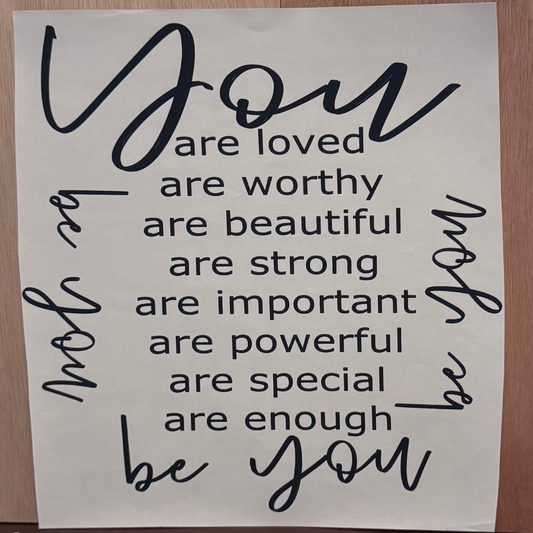 You
are loved
are worthy
are beautiful
are strong
are important
are powerful
are special
are enough
be you
be you
be you